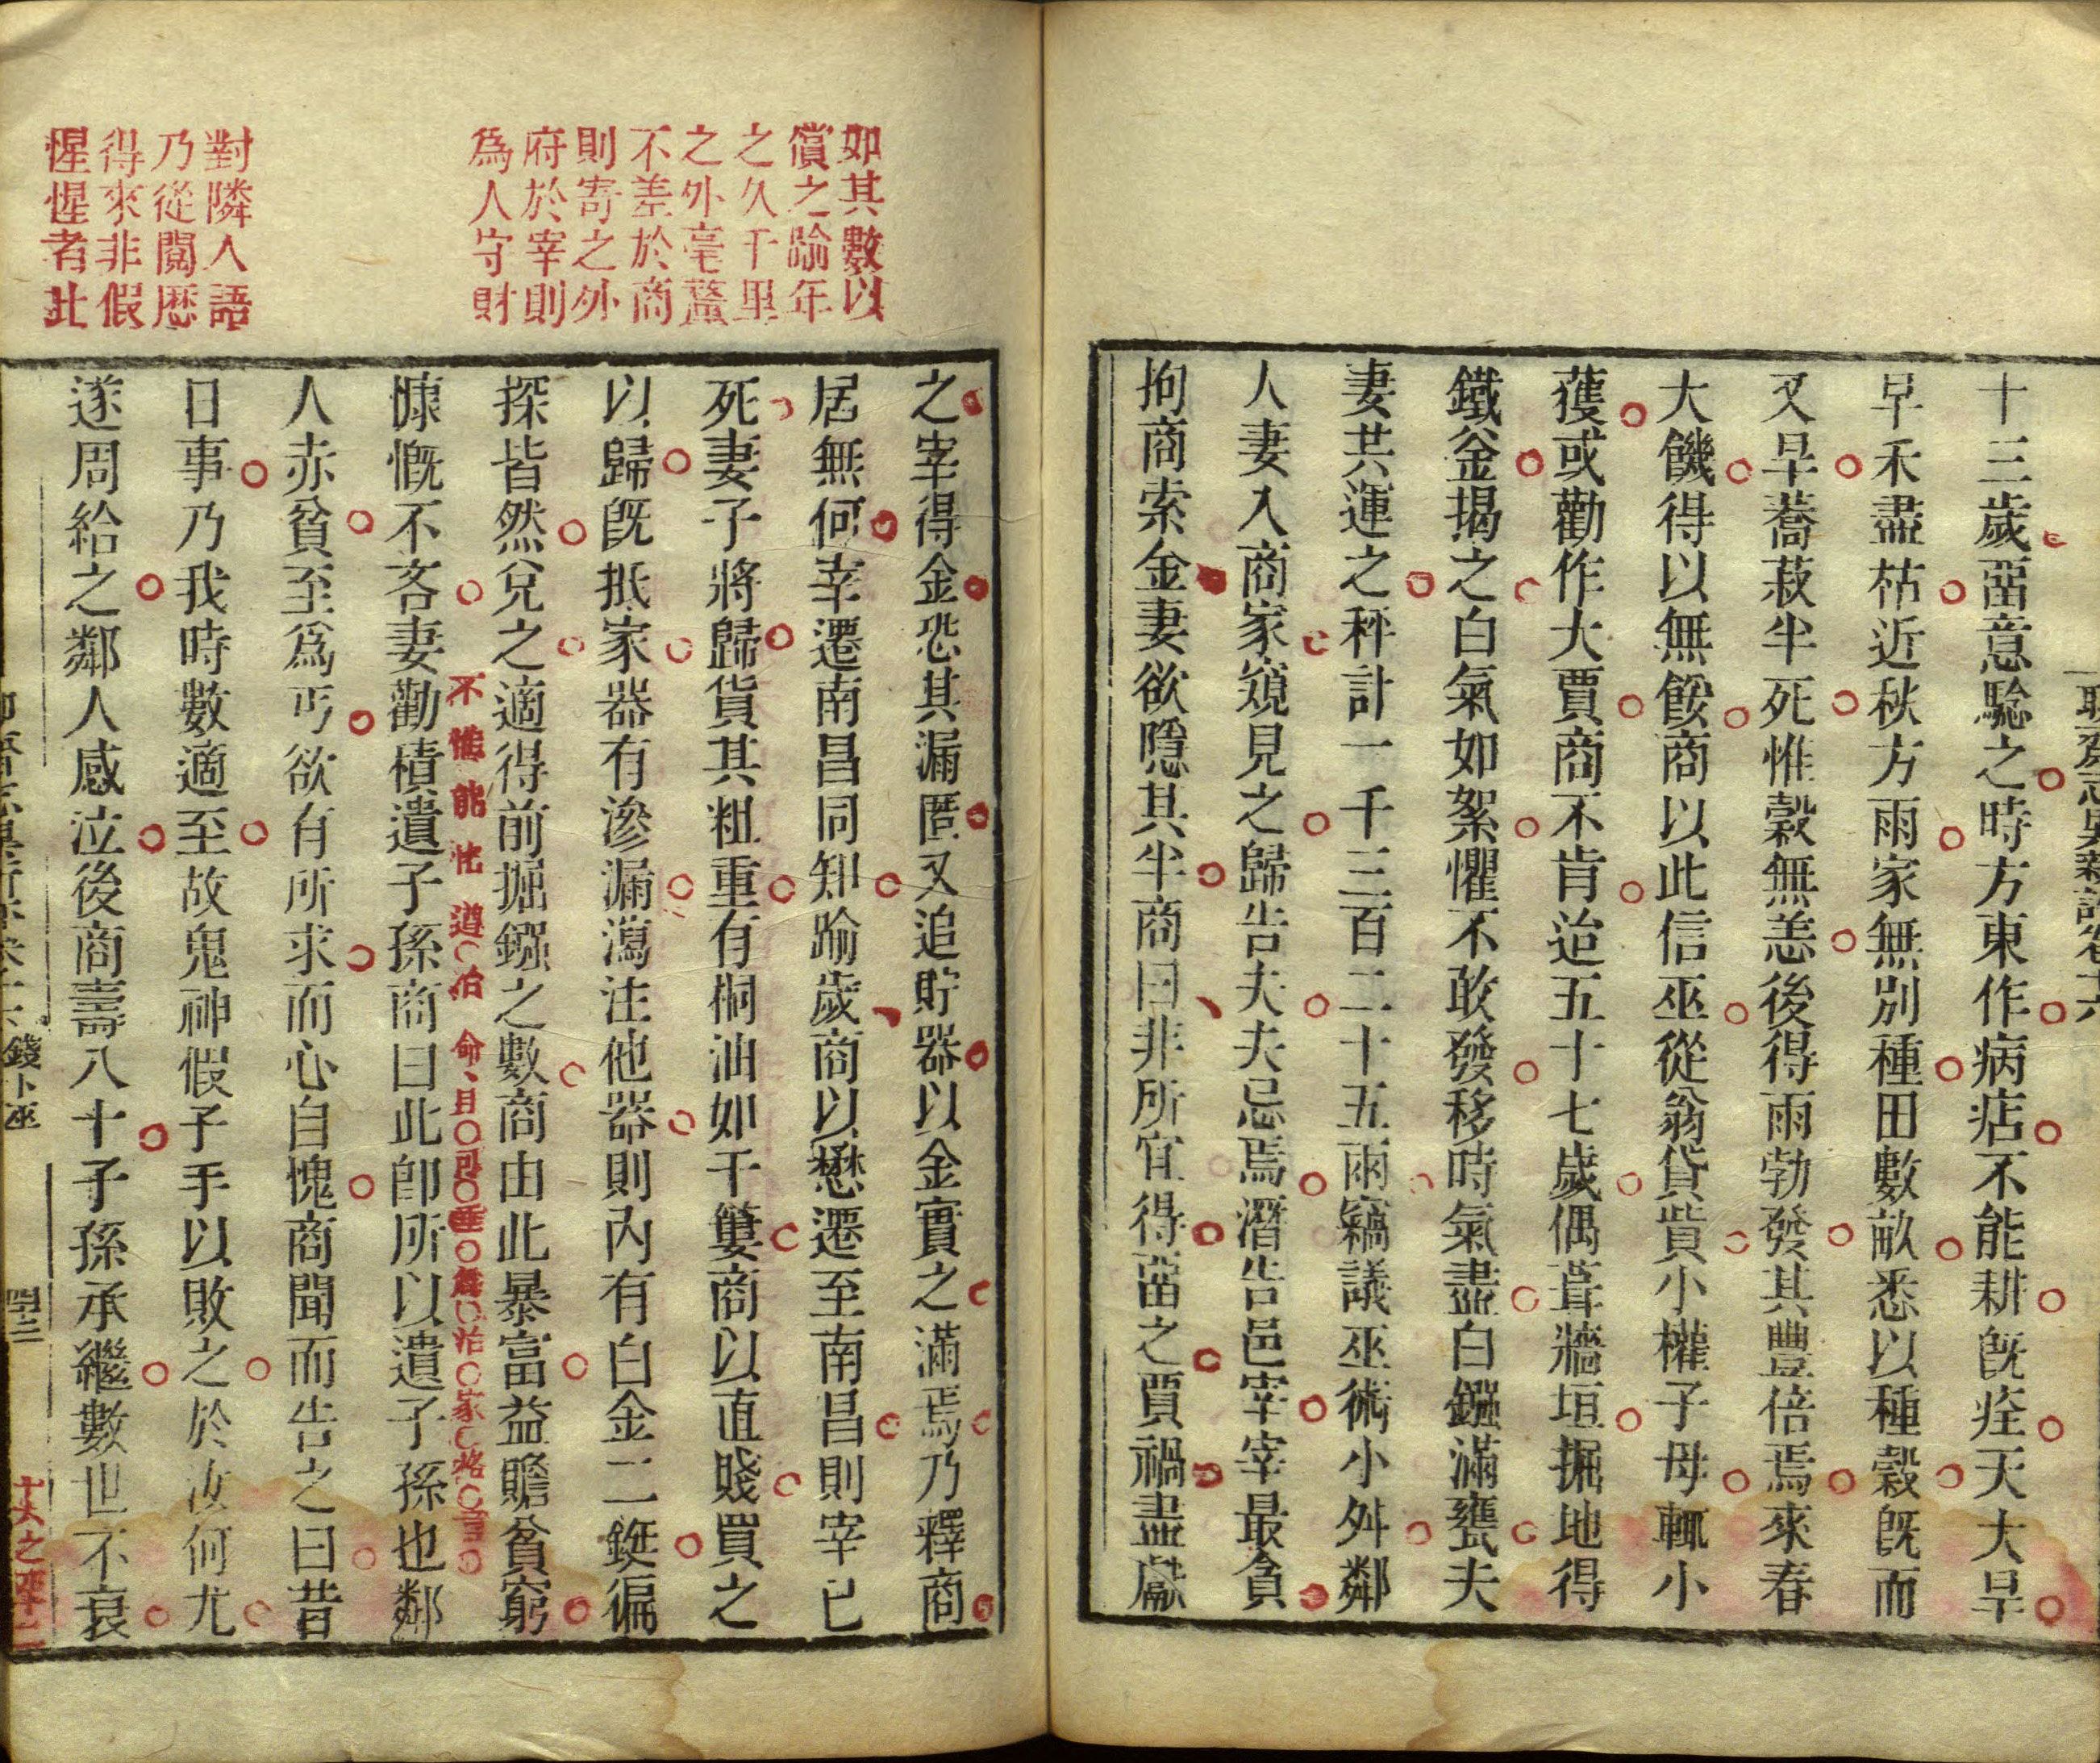 十三歲留意驗之時方東作病痁不能耕旣痊天大旱
早禾盡枯近秋方雨家無別種田數畝悉以種穀旣而
又旱蕎菽半死惟穀無恙後得雨勃發其豐倍焉來春
大饑得以無餒商以此信巫從翁貸貲小權子母輒小
獲或勸作大賈商不肯迨五十七歲偶葺牆垣掘地得
鐵釜揭之白氣如絮懼不敢發移時氣盡白鏹滿甕夫
妻共運之秤計一千三百二十五兩竊議巫術小舛鄰
人妻入商家窺見之歸告夫夫忌焉潛告邑宰宰最貪
拘商索金妻欲隱其半商曰非所宜得畱之賈禍盡獻
如其數以
償之踰年
之久千里
之外毫釐
不差於商
則寄之外
府於宰則
爲人守財
對隣人語
乃從閱歷
得來非假
惺惺者此
之宰得金恐其漏匿又追貯器以金實之滿焉乃釋商
居無何宰遷南昌同知踰歲商以懋遷至南昌則宰已
死妻子將歸貨其粗重有桐油如干簍商以直賤買之
以歸旣抵家器有滲漏瀉注他器則內有白金二鋌徧
探皆然兌之適得前掘鏹之數商由此暴富益贍貧窮
慷慨不吝妻勸積遺子孫商曰此卽所以遺子孫也鄰
人赤貧至爲丐欲有所求而心自愧商聞而告之曰昔
日事乃我時數適至故鬼神假子手以敗之於汝何尤
遂周給之鄰人感泣後商壽八十子孫承繼數世不衰
錢卜巫
四十三